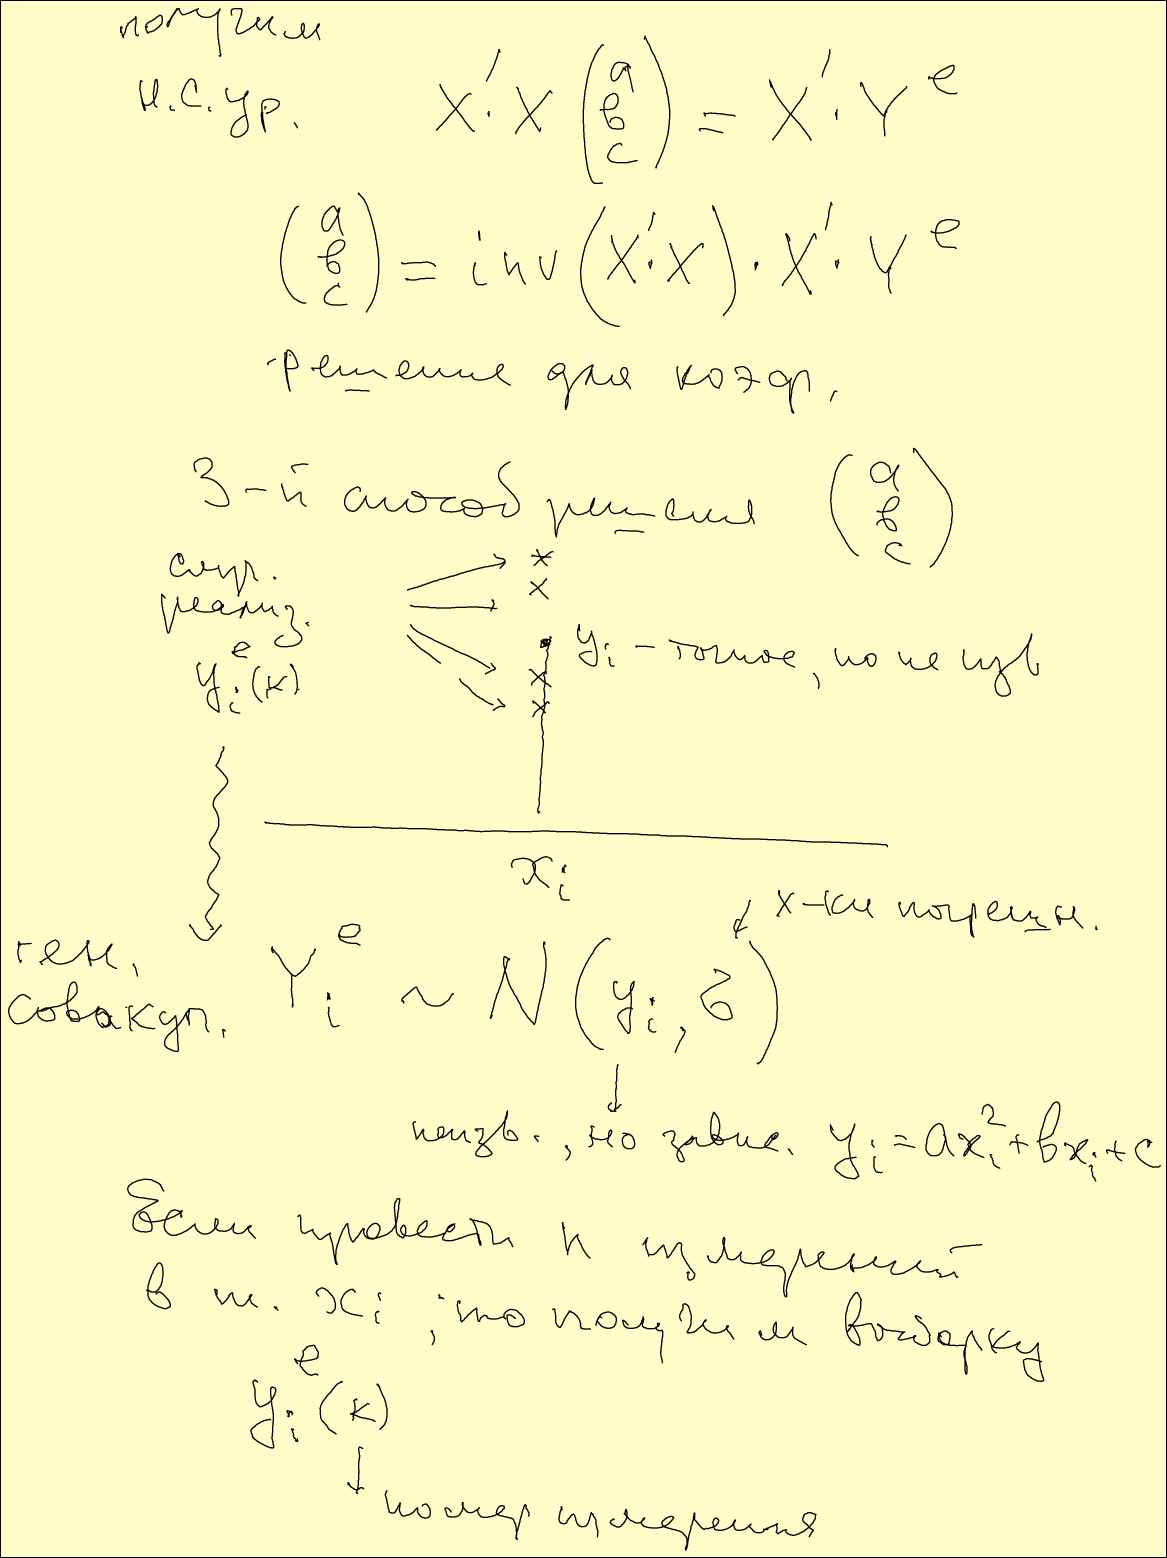 получим
н.с.ур. X'·X (a в c) = X'·Y^e
(a в c) = inv(X'·X)·X'·Y^e
решение для коэф.
3-й способ решения (a в c)
случ.
реализ.
y_i^e(к)
y_i – точное, но не изв
x_i
х-ки погрешн.
ген.
совокуп. Y_i^e ~ N(y_i, σ)
неизв., но завис. y_i = ax_i^2 + вx_i + c
Если провести к измерений
в т. x_i, то получим выборку
y_i^e(к)
номер измерения